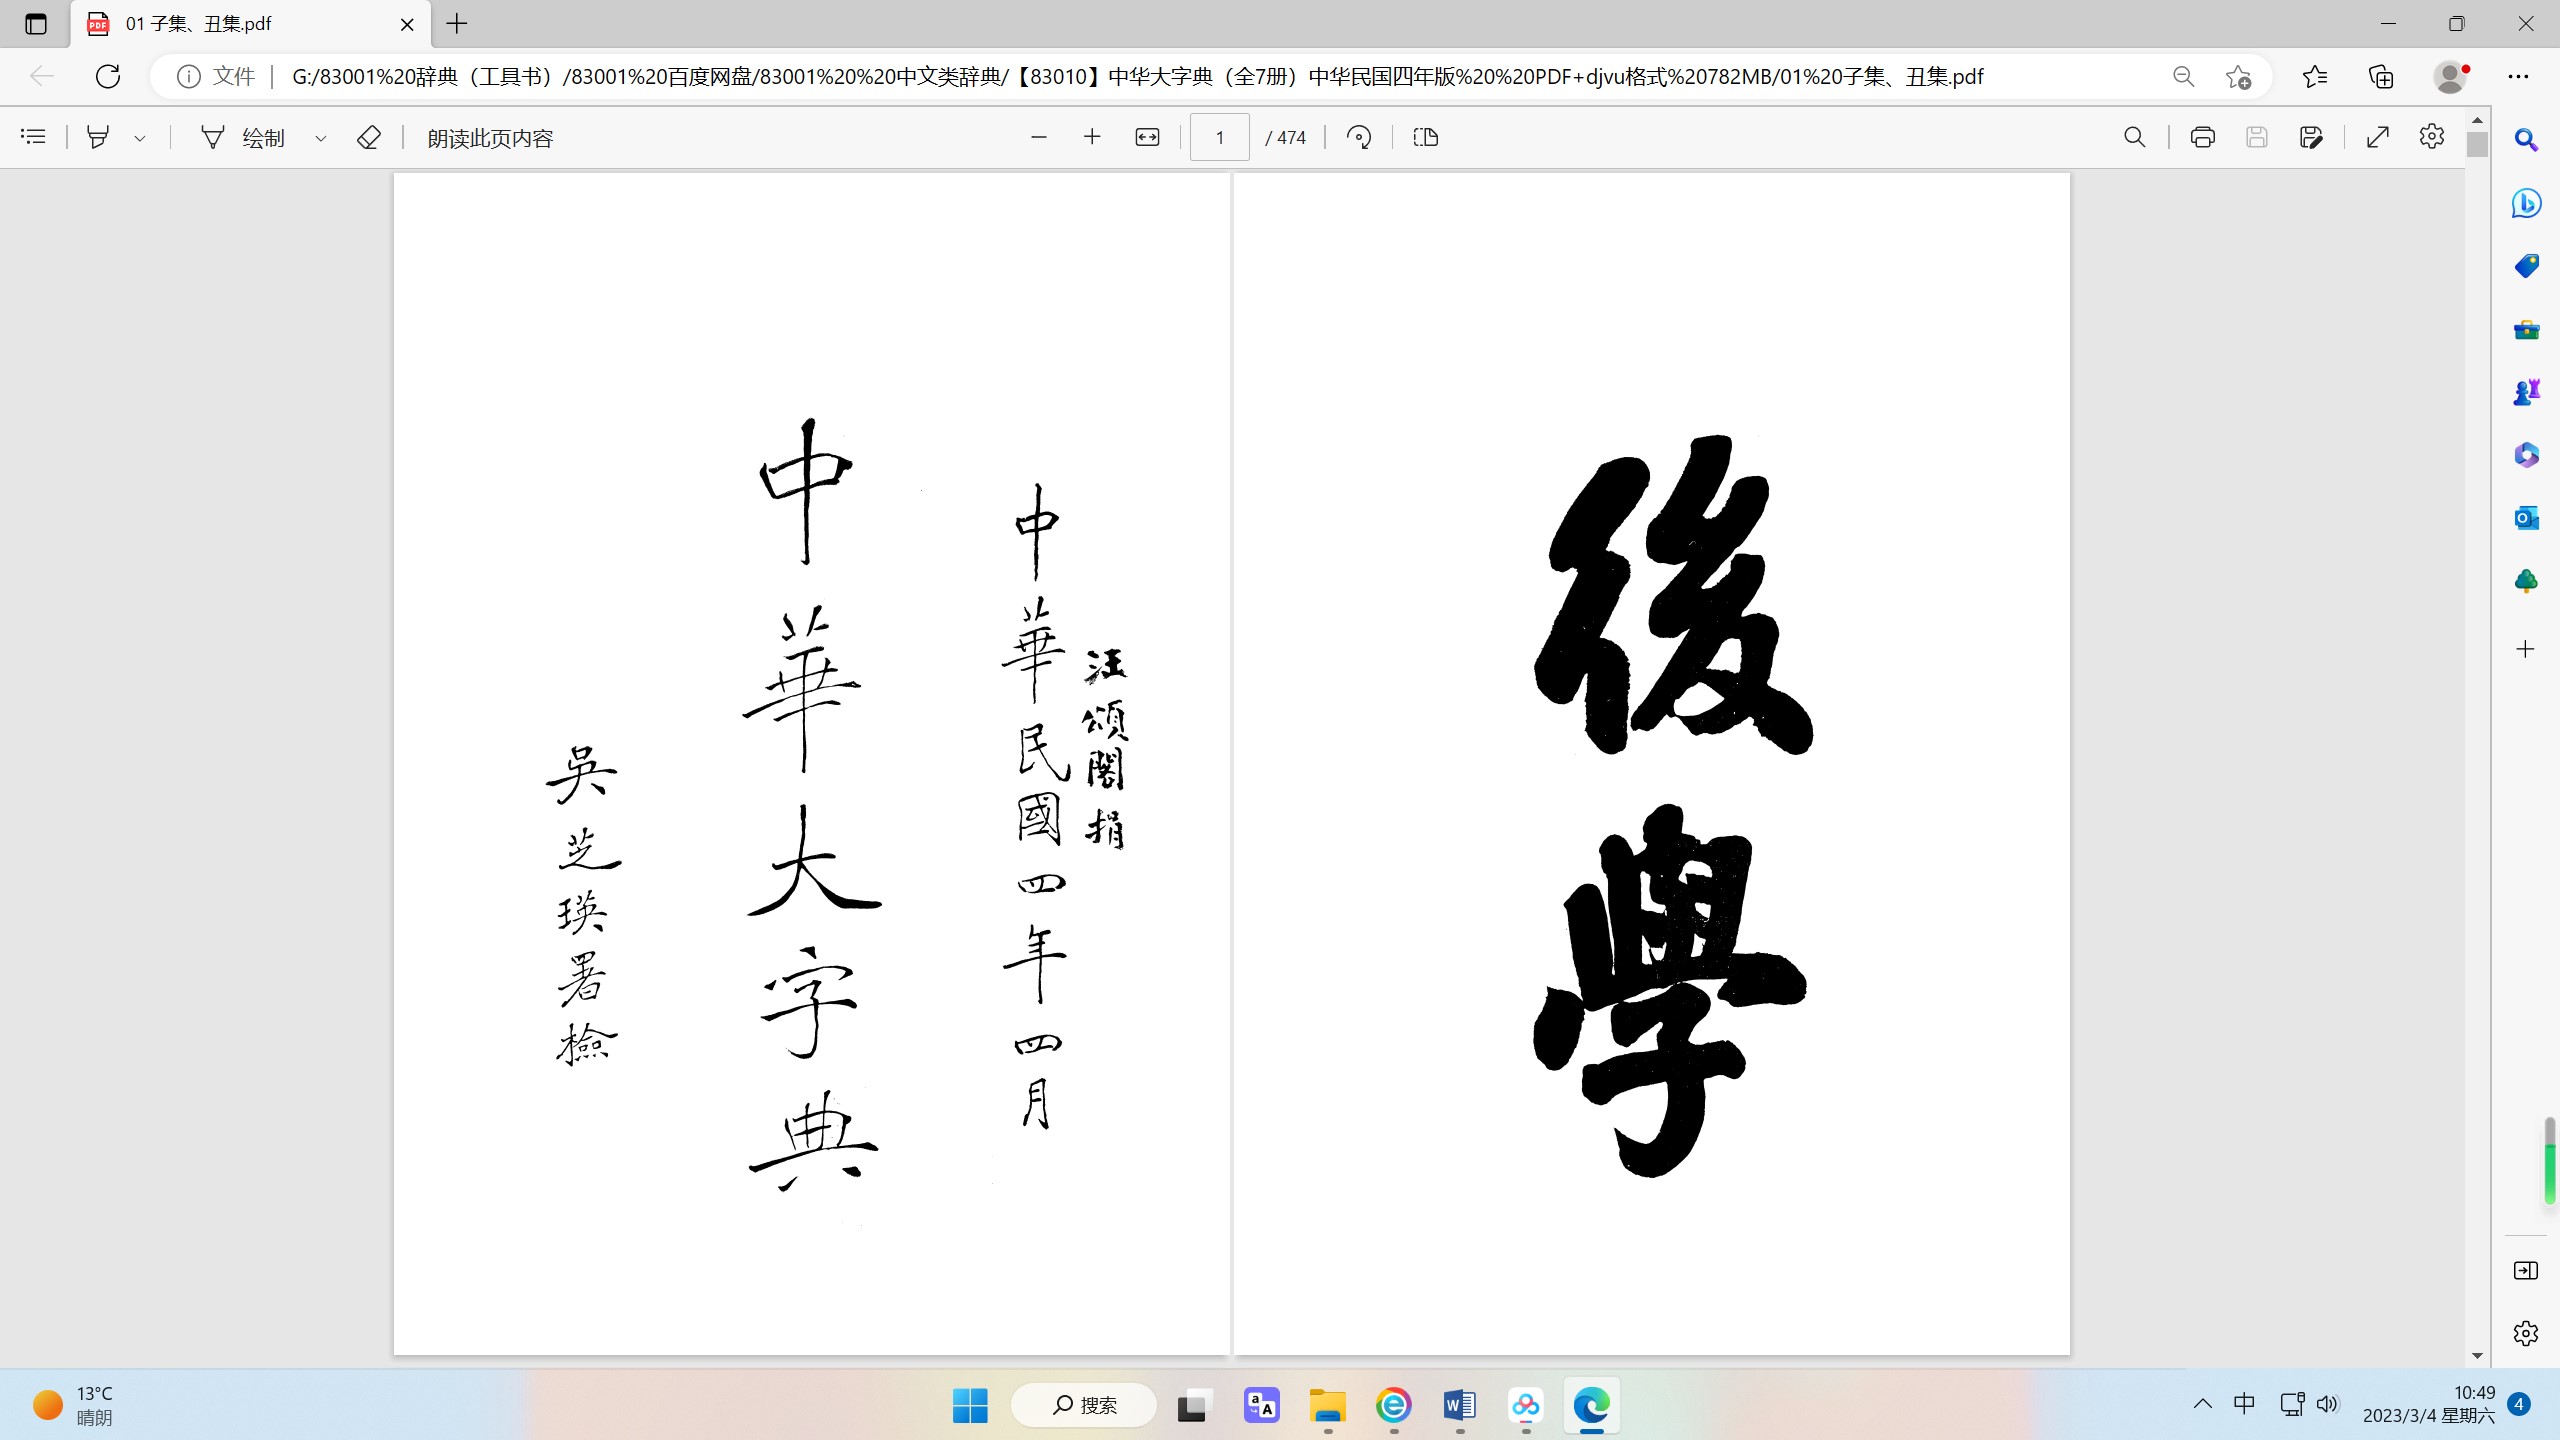 01 子集、丑集.pdf
文件
G:/83001%20辞典（工具书）/83001%20百度网盘/83001%20%20中文类辞典/【83010】中华大字典（全7册）中华民国四年版%20%20PDF+djvu格式%20782MB/01%20子集、丑集.pdf
绘制
朗读此页内容
1
/ 474
後學
汪頌閣捐
中華民國四年四月
中華大字典
吳芝瑛署檢
13°C
晴朗
搜索
中
10:49
2023/3/4 星期六
4